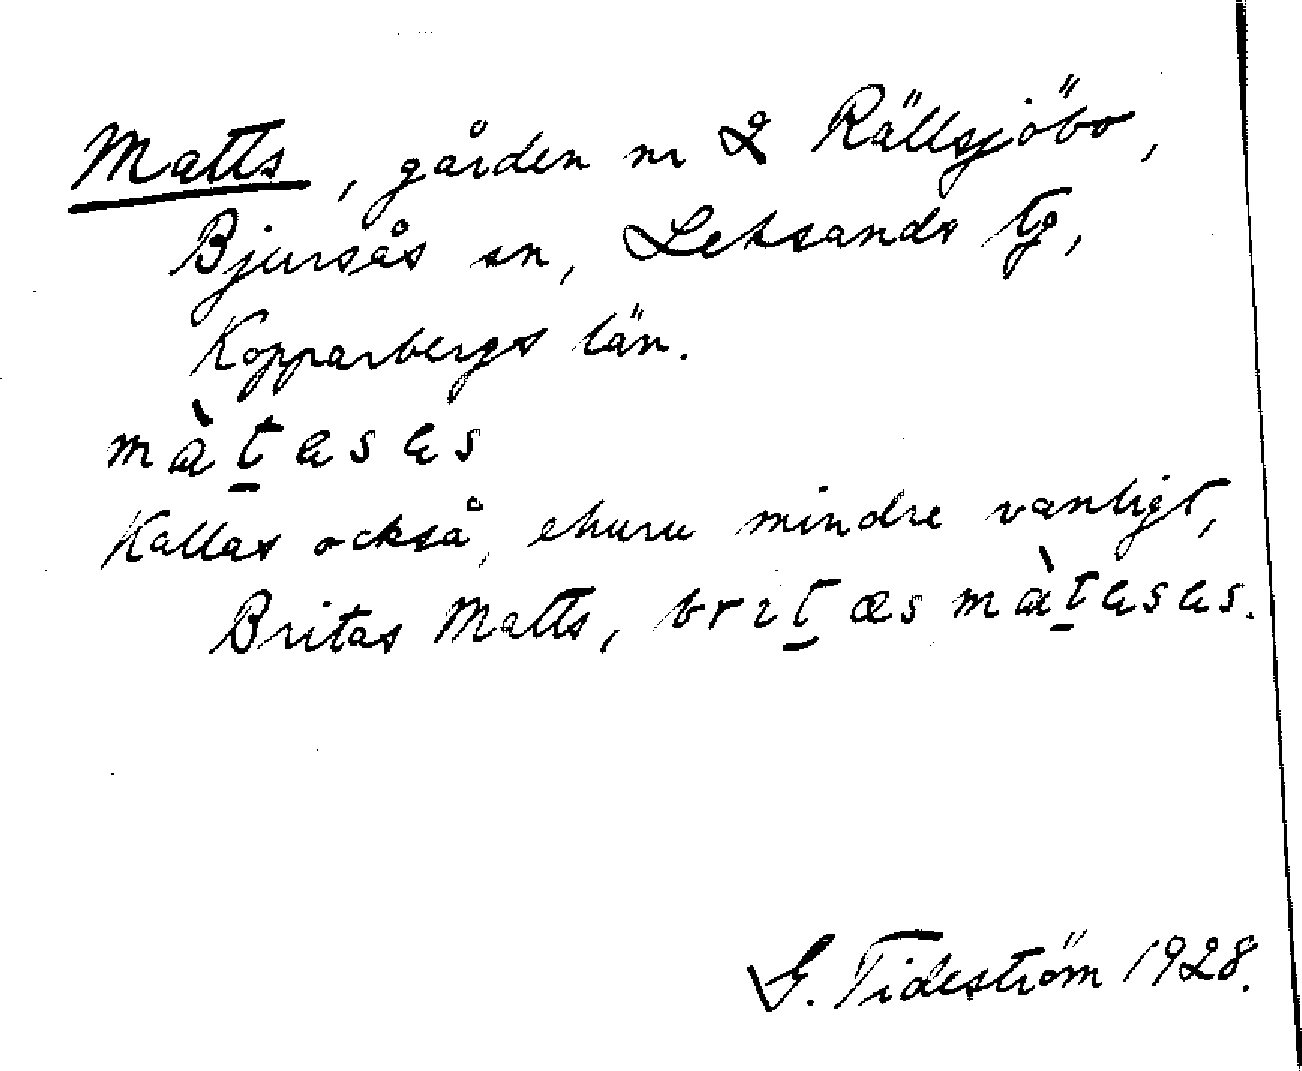 Matts, gården nr 2 Rällsjöbo,
Bjursås sn, Leksands tg,
Kopparbergs län.
màt̠əsəs
Kallas också, ehuru mindre vanligt,
Britas Matts, brɪt̠æs màt̠əsəs.
G. Tideström 1928.